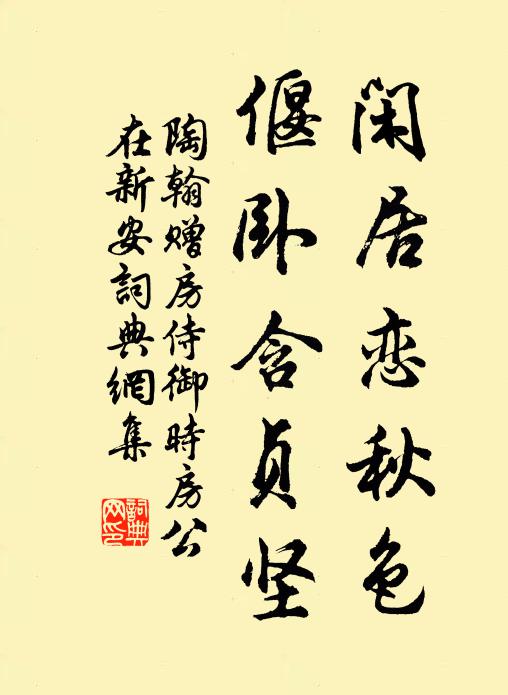 闲居恋秋色
偃卧含贞坚
陶翰赠房侍御時房公
在新安詞典網集
詞典
网印